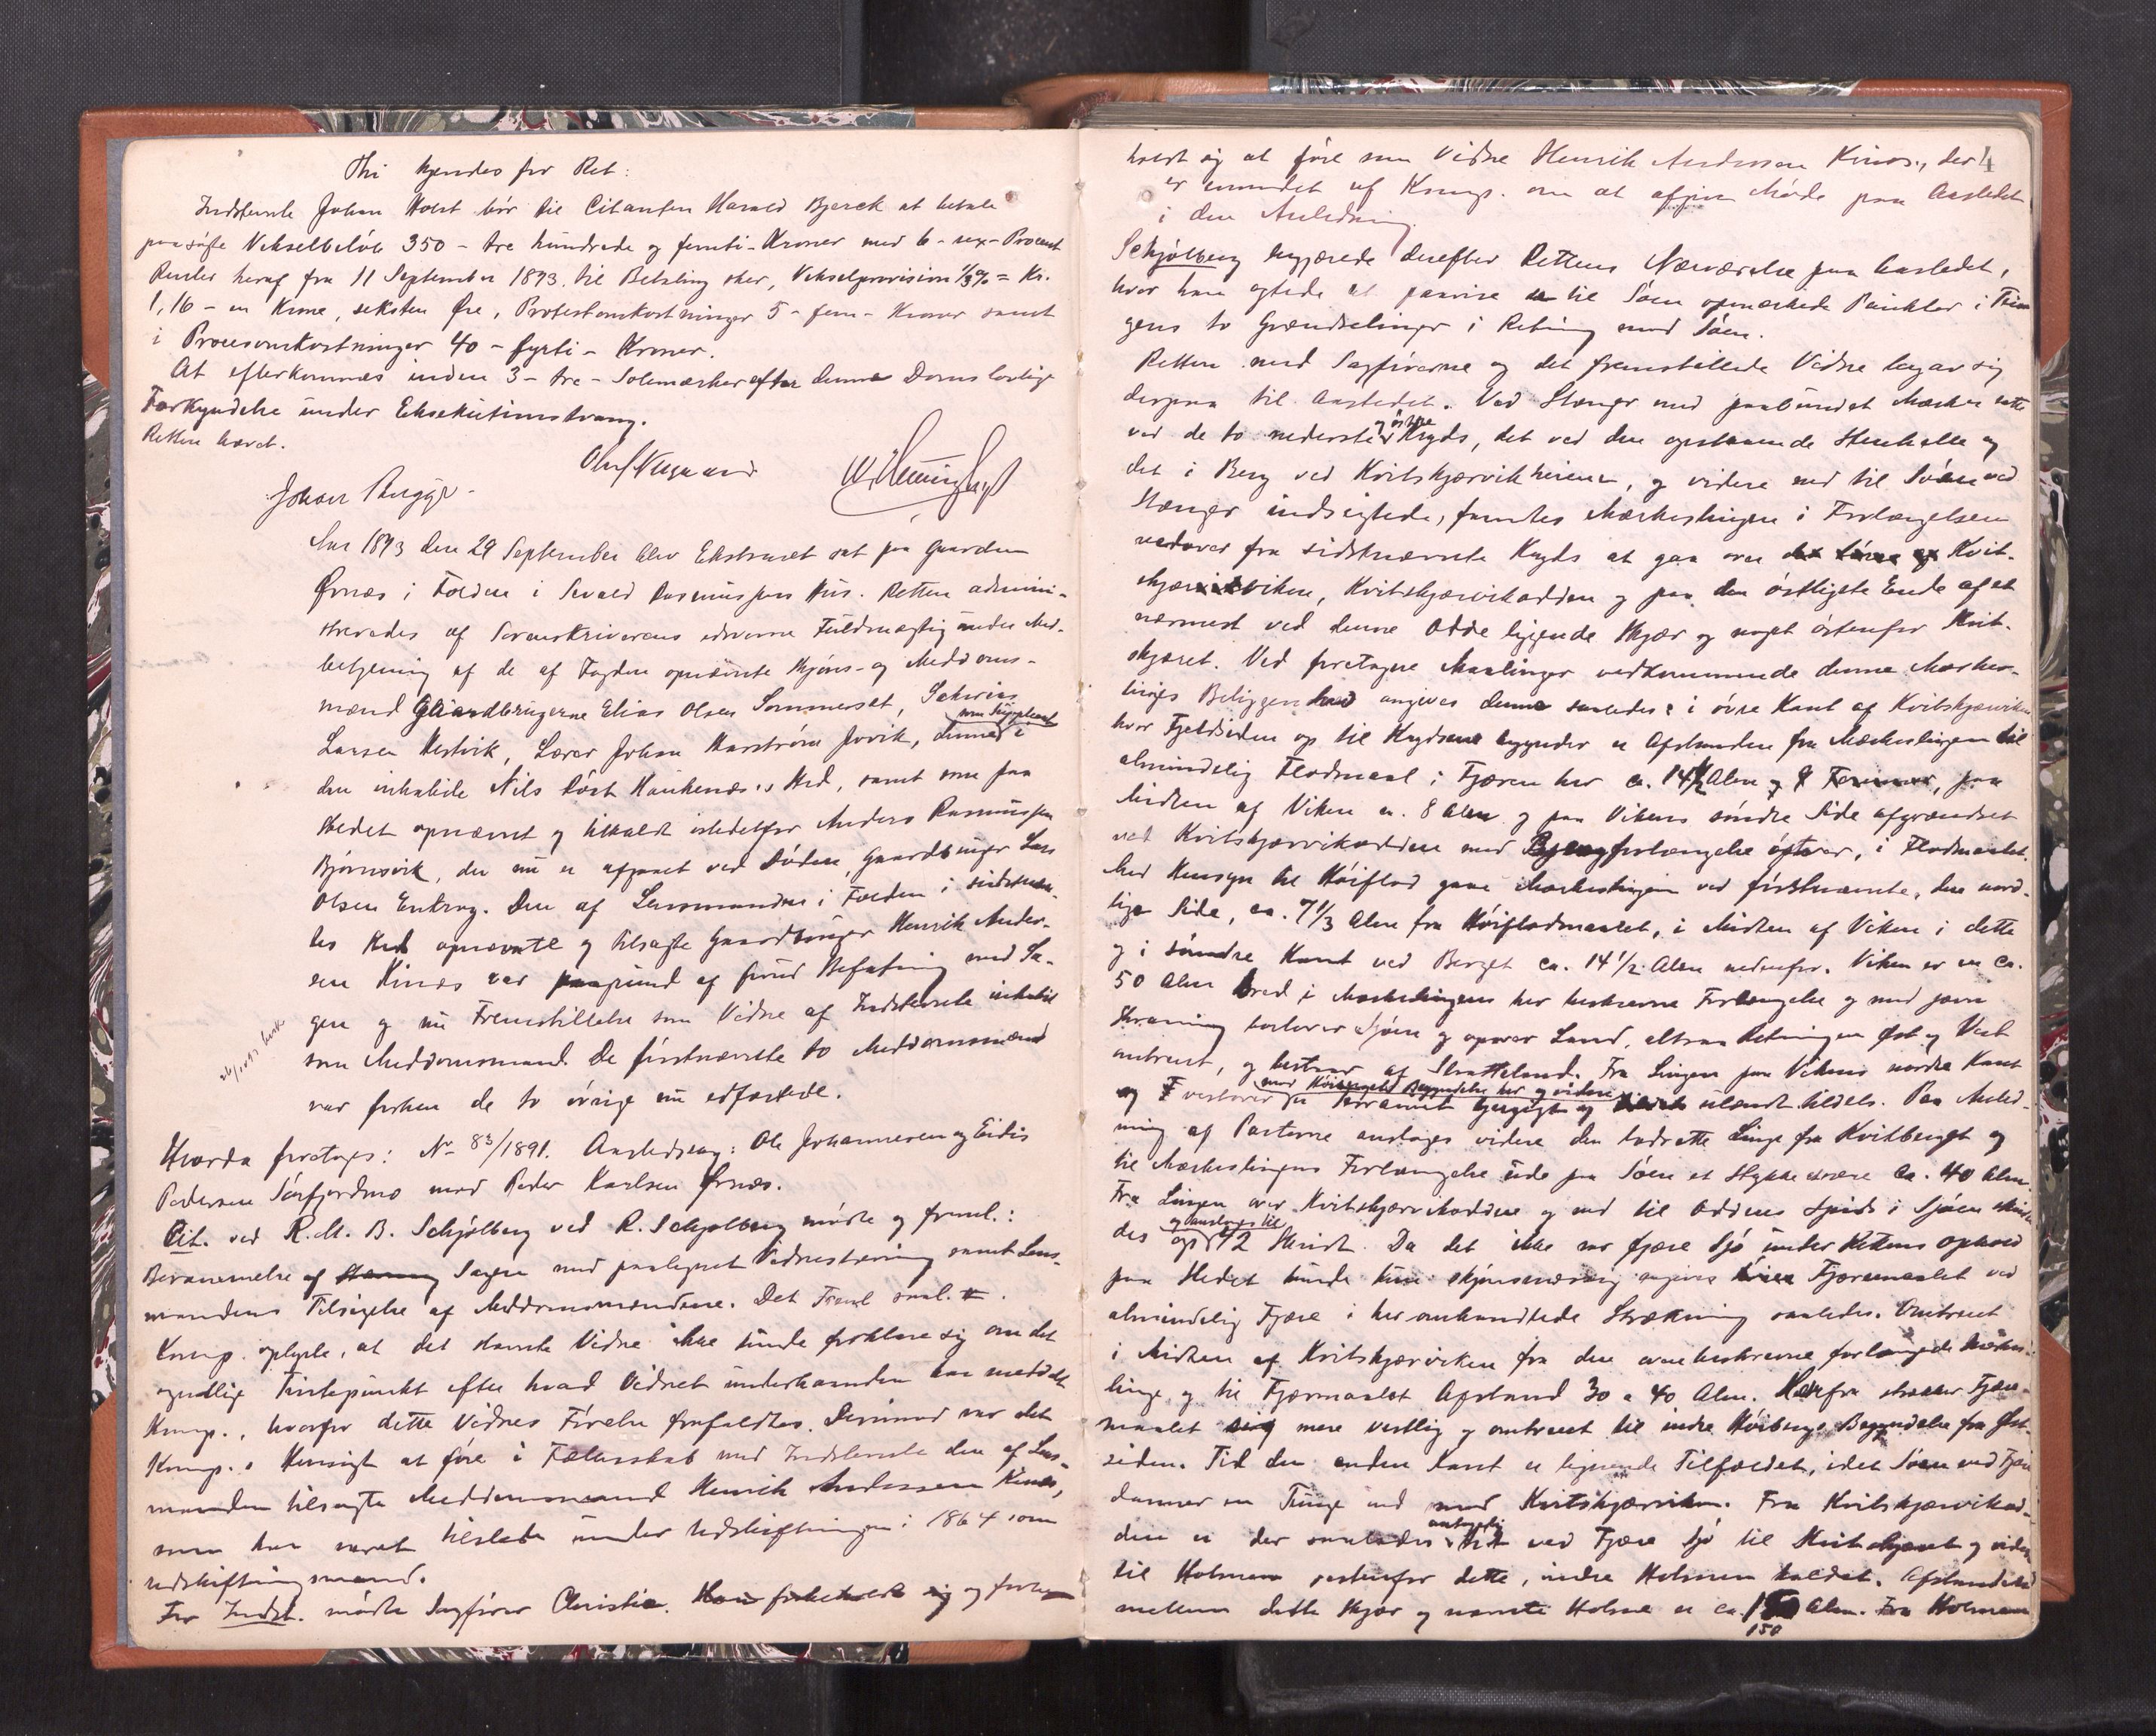 Thi kjendes for Ret:
Indstevnte Johan Holst bör til Citanten Harald Bjerck at betale
paasögte Vekselbelöb 350 - tre hundrede og femti - Kroner med 6 - sex - Procent
Renter heraf fra 11 September 1893 til Betaling sker, Vekselprovision 1/3 % = Kr.
1,16 - en Krone, seksten Öre, Protestomkostninger 5 - fem - Kroner samt
i Procesomkostninger 40 - fyrti - Kroner.
At efterkommes inden 3 - tre - Solemærker efter denne Doms lovlige
Forkyndelse under Eksekutionstvang.
Retten hævet.
Aar 1893 den 29 September blev Ekstraret sat på Gaarden
Örnes i Folden i Sevald Rasmussens Hus. Retten admini-
streredes af Sorenskriverens edsvorne Fuldmægtig under Med-
betjening af de af Fogden opnævnte Skjöns- og Meddoms-
mænd Gaardbrugerne Elias Olsen Sommerset,
Larsen Hestvik, Lærer Johan, denne som Suppleant i
den inhabile Nils Röst Haukenæs's Sted, samt som paa
Stedet opnævnt og tilkaldt istedetfor Anders Rasmussen
Björnsvik, der nu er afgaaet ved Döden, Gaardbruger Lars
Olsen. Den af Lensmanden i Folden i sidstnævn-
tes Sted opnævnte og tilsagte Gaardbruger Henrik Ander-
sen Kinæs var paagrund af forud Befatning med Sa-
gen og nu Fremstillelse som Vidne af Indstevnte inhabil
som Meddomsmand. De förstnævnte to Meddomsmænd
var forhen de to övrige nu edfæstede.
Hvorda foretoges: No 83/1891. Aastedssag: Ole Johannesen og Eidis
Pedersen Sörfjordmo mod Peder Karlsen Örnes.
Cit. ved R.M. B. Schjölberg ved R. Schjölberg mödte og freml.:
Berammelse af Sagen med paategnet Vidnestævning samt Lens-
mandens Tilsigelse af Meddomsmændene. Det Freml saal.
Komp. oplyste, at det stævnte Vidne ikke kunde forklare sig om det
Tvistepunkt efter hvad Vidnet underhaanden har meddelt
Komp., hvorfor dette Vidnes Förelse frafaldtes. Derimod var det
Komp.s Hensigt at före i Fællesskab med Indstevnte den af Lens-
manden tilsagte Meddomsmand Henrik Andersen Kinæs,
som har været tilstede under Udskiftningen i 1864 som
Udskiftningsmand.
For Indst. mödte Sagförer Christie. og forbe-
4
holdt sig at före som Vidne Henrik Andersen Kinæs, der
er anmodet af Komp. om at afgive Möde paa Aastedet
i den Anledning.
Schjölberg begjærede derefter Rettens Nærværelse paa Aastedet,
hvor han agtede at paavise til Söen opmærkede Punkter i
gens to Grændselinjer i Retning mod Söen.
Retten med Sagförerne og det fremstillede Vidne begav sig
derpaa til Aastedet. Ved Stænger med paabundet Mærker satte
ved de to nederste og östre Kryds, det ved den opstaaende Stenhelle og
det i Berg ved Kvitskjærvikheien, og videre ned til Söen ved
Stænger indsigtede, fandtes Mærkeslinjen i Forlængelsen
nedover fra sidstnævnte Kryds at gaa over Kvit-
skjærviken, Kvitskjærvikodden og paa den östligste Ende af et
nærmest ved denne Odde liggende Skjær og noget östenfor Kvit-
skjæret. Ved foretagne Maalinger vedkommende denne Mærkes-
linjes Beliggenhed angives denne saaledes: i övre Kant af Kvitskjærviken
hvor Fjeldsiden op til Krydsene begynder er Afstanden fra Mærkeslinjen til
almindelig Flodmaal i Fjæren her ca. 14 1/2 Alen, paa
Midten af Viken ca. 8 Alen og paa Vikens söndre Side afgrændset
ved Kvitskjærvikodden med Bergforlængelse östover, i Flodmaalet.
Med Hensyn til Höiflod gaar Mærkeslinjen ved förstnævnte, den nord-
lige Side, ca. 7 1/3 Alen fra Höiflodmaalet, i Midten af Viken i dette
og i söndre Kant ved Berget ca. 14 1/2 Alen nedenfor. Viken er en ca.
50 Alen bred i Mærkeslinjens her beskrevne Forlængelse og med jævn
Skraaning udover Sjöen og opover Land, altsaa Retningen Öst og Vest
omtrent, og bestaar af Slaatteland. Fra Linjen paa Vikens nordre Kant
ning af Parterne ansloges videre den lodrette Linje fra Kvitberget og
til Mærkeslinjens Forlængelse ude paa Söen et Stykke större ca. 40 Alen.
Fra Linjen over Kvitskjærvikodden og ud til Oddens Spids i Sjöen skridte-
des op og ansloges til 42 Skridt. Da det ikke var fjære Sjö under Rettens Ophold
paa Stedet kunde kun skjönsmæssig angives Fjæremaalet ved
almindelig Fjære i her omhandlede Strækning saaledes. Omtrent
i Midten af Kvitskjærviken fra den ovenbeskrevne forlængede Mærkes-
linje og til Fjærmaalet Afstand 30 a 40 Alen. Herfra strækker Fjære-
maalet sig mere vestlig og omtrent til indre Begyndelse fra Öst-
siden. Til den anden Kant er lignende Tilfældet, idet Söen ved Fjære
danner en Tunge ind mod Kvitskjærviken. Fra Kvitskjærvikod-
den er der saaledes antagelig tört ved Fjære Sjö til Kvitskjæret og videre
til Holmen vestenfor dette, indre Holmen kaldet. Afstanden
mellem dette Skjær og nævnte Holme er ca. 150 Alen. Fra Holmen
150